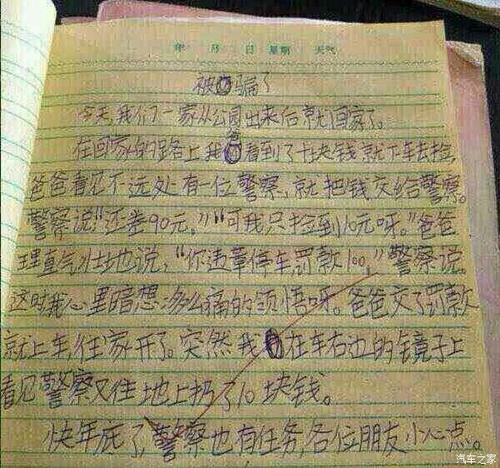 年 月 日 星期 天气
被骗了
今天我们一家从公园出来后就回家了。
在回家的路上我爸看到了十块钱就下车去捡,
爸爸看见不远处有一位警察,就把钱交给警察。
警察说“还差90元,”“可我只捡到10元呀。”爸爸
理直气壮地说,“你违章停车罚款100,”警察说。
这时我心里暗想:多么痛的领悟呀。爸爸交了罚款
就上车往家开了。突然我在车右边的镜子上
看见警察又往地上扔了10块钱。
快年死了,警察也有任务,各位朋友小心点。
汽车之家